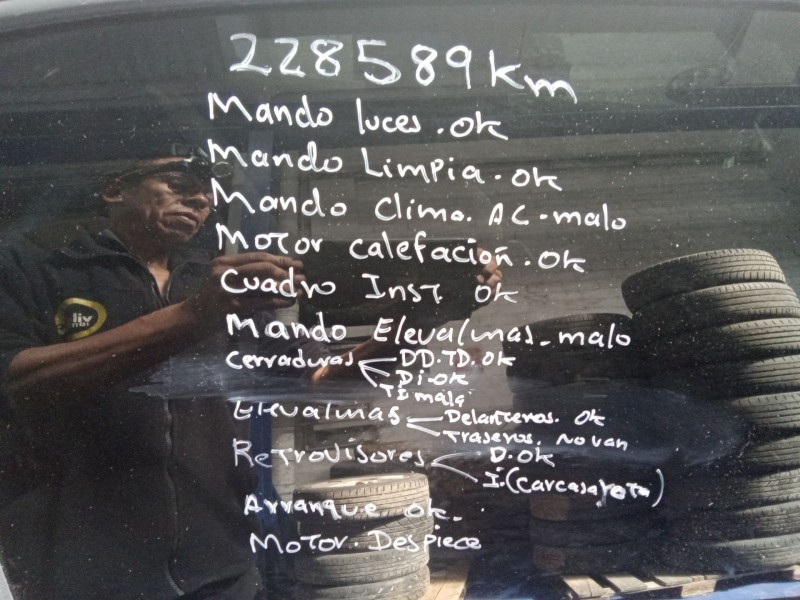 228589 km
Mando luces. ok
Mando Limpia. ok
Mando Clima. AC. malo
Motor calefación. ok
Cuadro Inst. ok
Mando Elevalunas. malo
Cerraduras DD. TD. ok
Di. ok
TI mala
Elevalunas Delanteros. ok
Traseros. no van
Retrovisores D. ok
I. (carcasa rota)
Arranque ok.
Motor. Despiece
liv